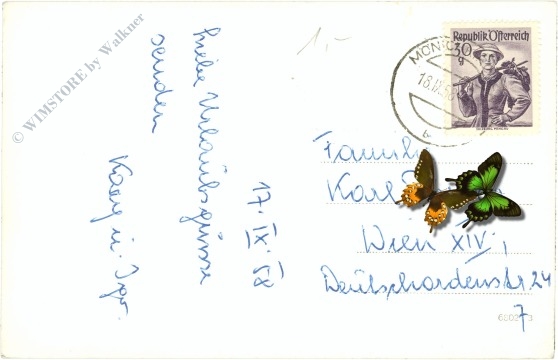 © WIMSTORE by Walkner
1,-
Liebe Urlaubsgrüsse
senden
17. IX. 58
Republik Österreich
30
g
18.IX.58
Familie
Karl
Wien XIV,
Deutschordenstr. 24
7